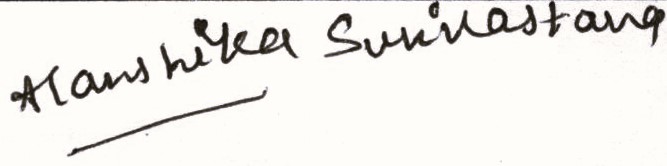 Aanshika Srivastava